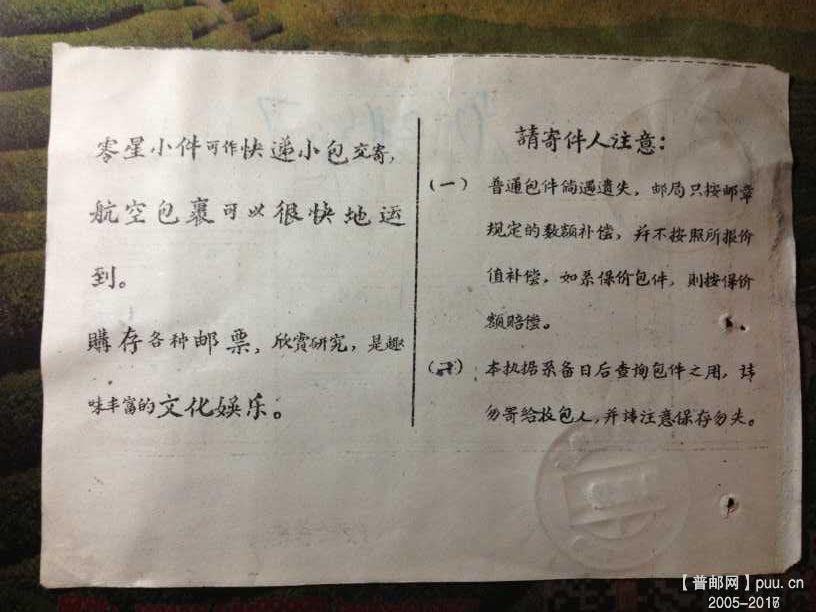 零星小件可作快递小包交寄,
航空包裹可以很快地运
到。
購存各种邮票,欣赏研究,是趣
味丰富的文化娱乐。
請寄件人注意:
(一) 普通包件倘遇遗失,邮局只按邮章
规定的数额补偿,并不按照所报价
值补偿,如系保价包件,则按保价
额赔偿。
(二) 本执据系备日后查询包件之用,请
勿寄给收包人,并请注意保存勿失。
【普邮网】puu.cn
2005-2016